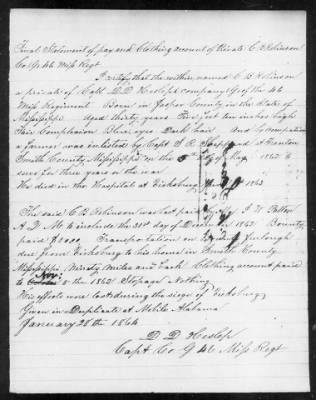 Final Statement of pay and Clothing account of Private C B Robinson
Co G, 46 Miss Regt
I certify that the within named C B Robinson
a private of Capt D D Heslep company G of the 46
Miss Regiment Born in Jasper County in the State of
Mississippi Aged thirty years Five feet ten inches high
Fair Complexion Blue eyes Dark hair And by occupation
a farmer was enlisted by Capt at Trenton
Smith County, Mississippi on the day of May 1862 to
serve for three years or the war
He died in the Hospital at Vicksburg 1863
The said C B Robinson was last paid by J W Patton
A Q M to include the 31st day of December 1862 Bounty
paid Transportation on furlough
due from Vicksburg to his home in Smith County
Mississippi Ninety Miles and back Clothing account paid
to Nov 8 the 1862 Stopage Nothing
His effects were lost during the siege of Vicksburg
Given in Duplicate at Mobile Alabama
January 28th 1864
D D Heslep
Capt Co G 46 Miss Regt